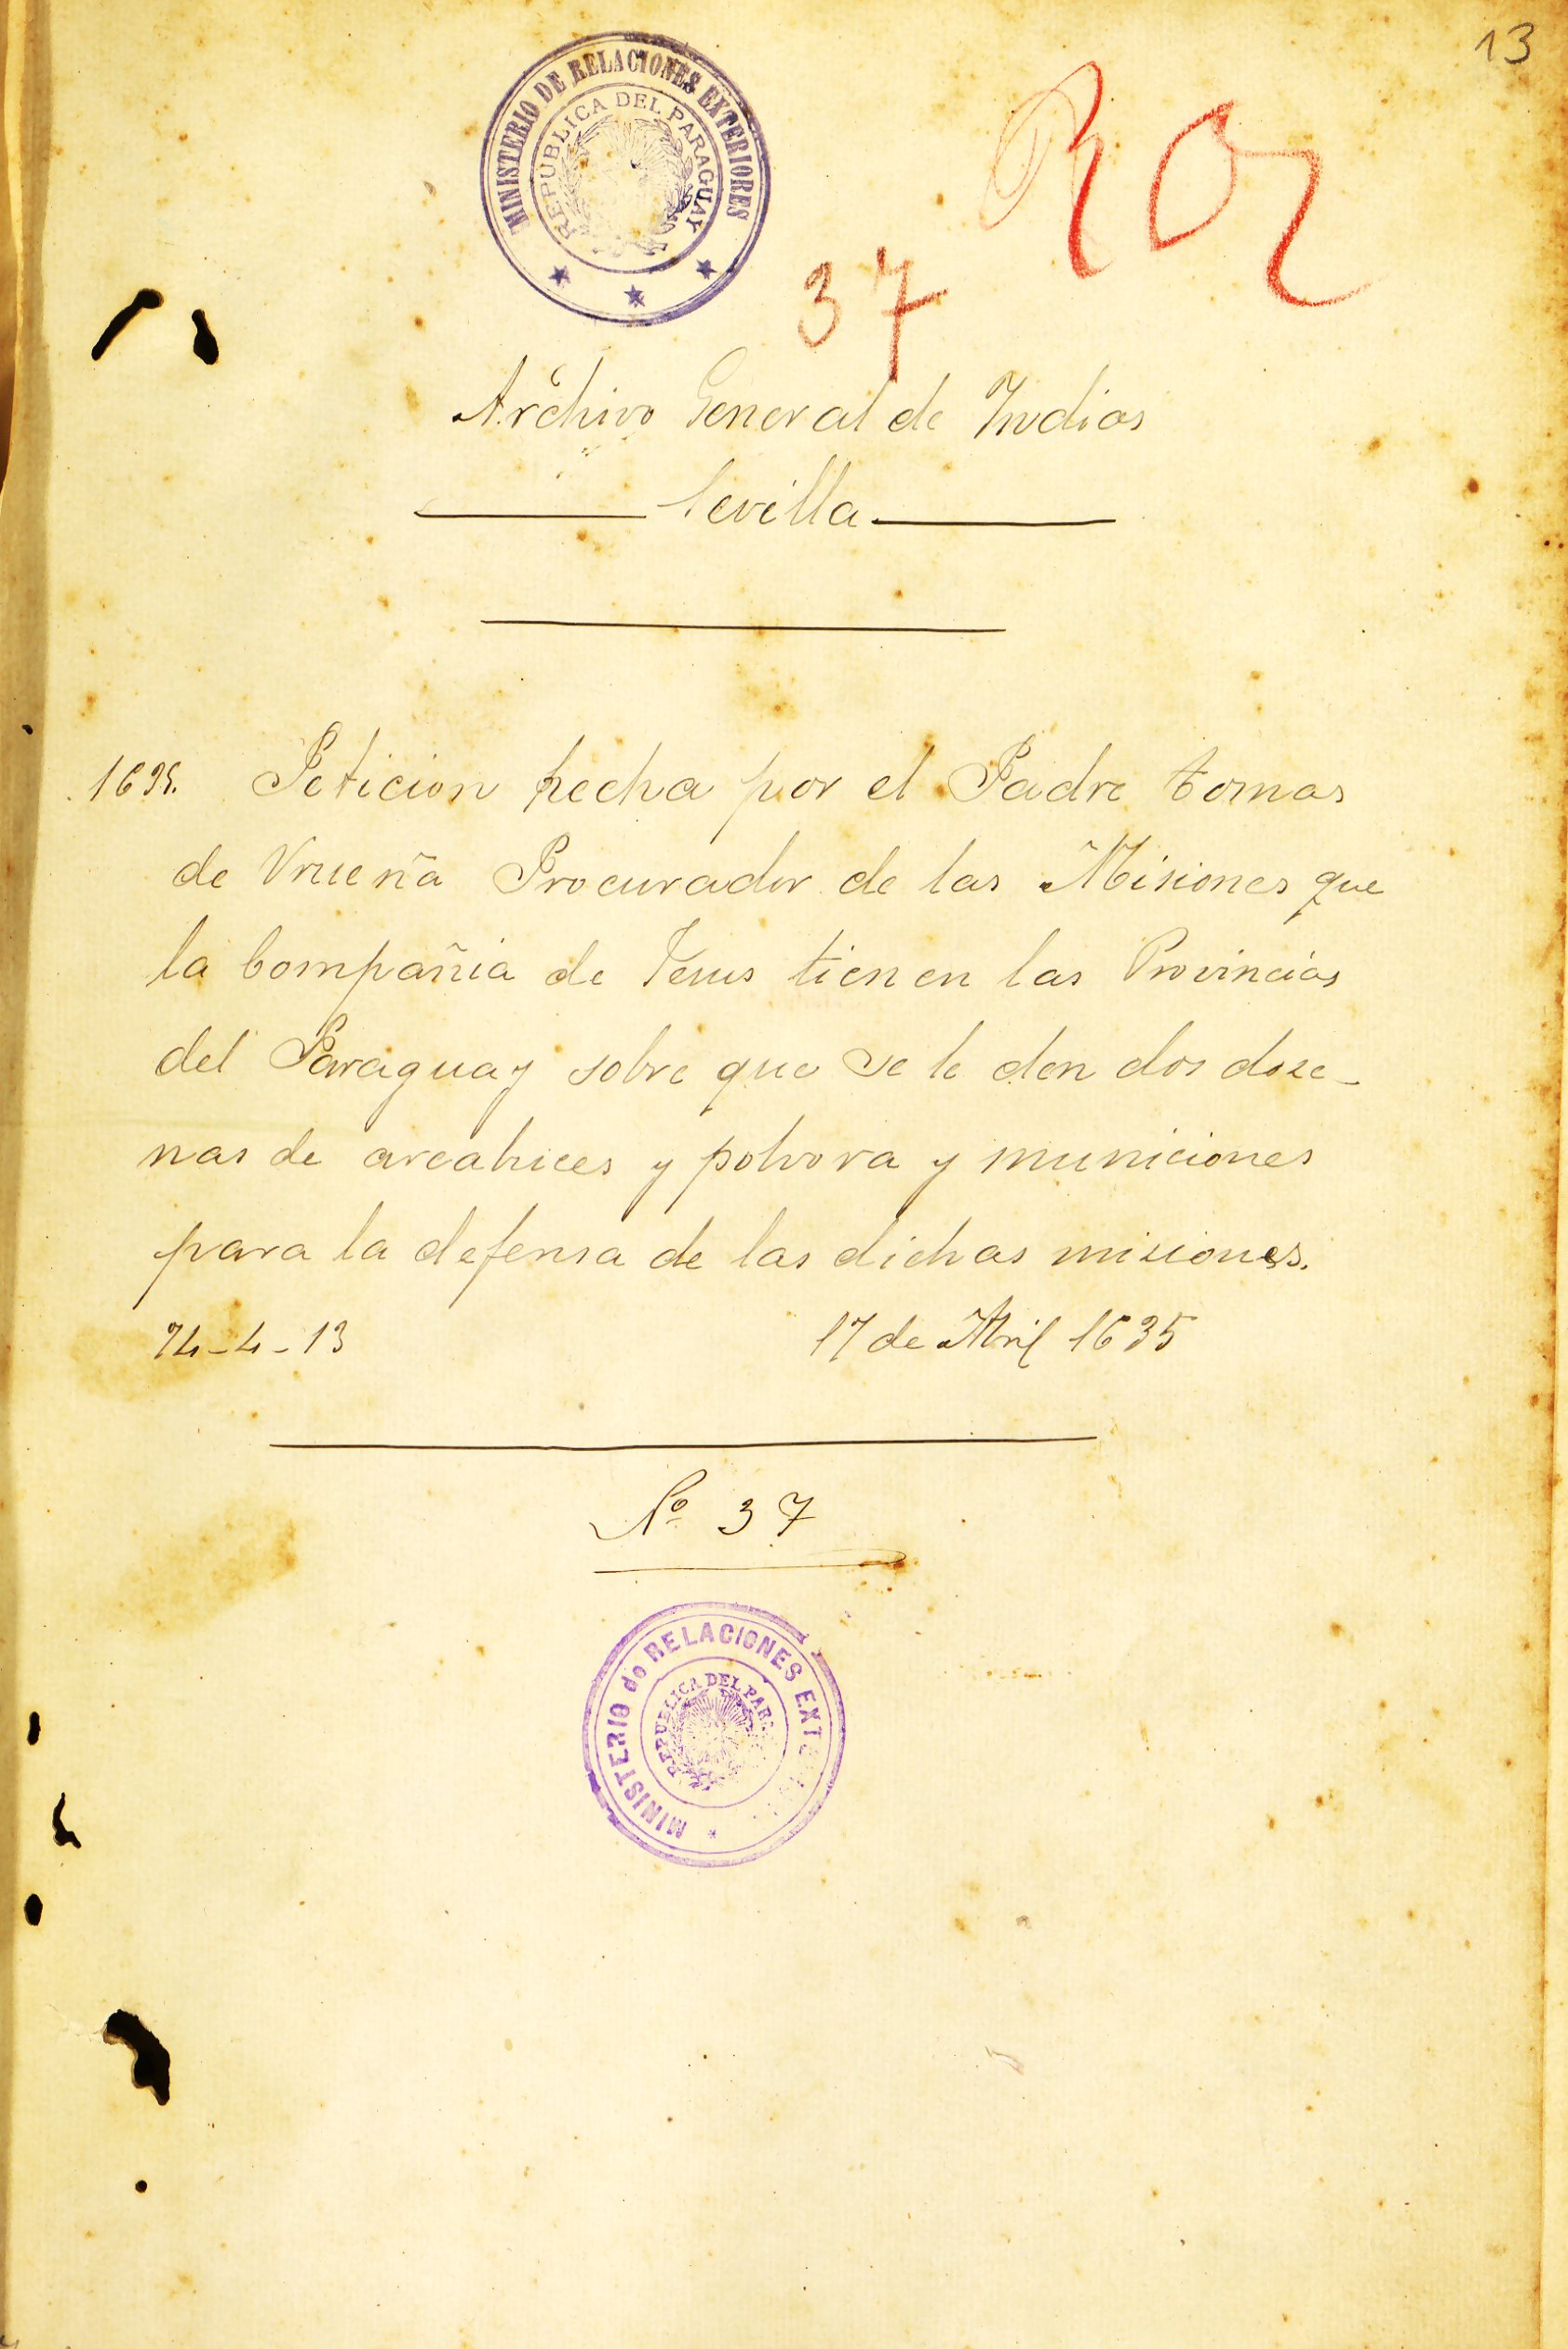 13
MINISTERIO DE RELACIONES EXTERIORES
REPUBLICA DEL PARAGUAY
37
Archivo General de Indias
Sevilla
1635. Peticion hecha por el Padre tomas
de Vrueña Procurador de las Misiones que
la Compañia de Jesus tienen las Provincias
del Paraguay sobre que se le den dos doze-
nas de arcabuces y polvora y municiones
para la defensa de las dichas misiones.
74-4-13 17 de Abril 1635
No 37
MINISTERIO de RELACIONES EXTE
REPUBLICA DEL PAR